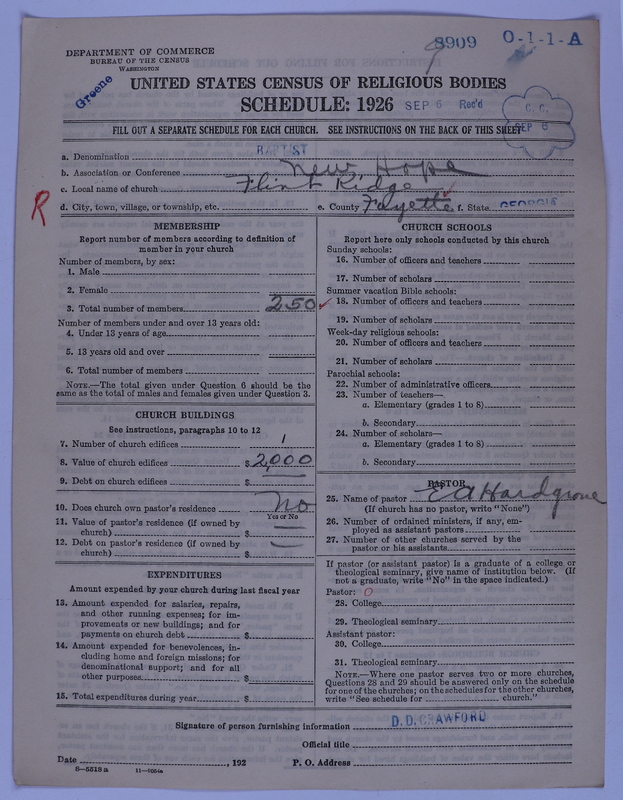 8909 O-1-1-A
DEPARTMENT OF COMMERCE
BUREAU OF THE CENSUS
WASHINGTON
Greene
UNITED STATES CENSUS OF RELIGIOUS BODIES
SCHEDULE: 1926 SEP 6 Rec'd
C. C.
SEP 6
FILL OUT A SEPARATE SCHEDULE FOR EACH CHURCH. SEE INSTRUCTIONS ON THE BACK OF THIS SHEET
a. Denomination BAPTIST
b. Association or Conference New Hope
c. Local name of church Flint Ridge
R
d. City, town, village, or township, etc. e. County Fayette f. State GEORGIA
MEMBERSHIP
Report number of members according to definition of
member in your church
Number of members, by sex:
1. Male
2. Female
3. Total number of members 250
Number of members under and over 13 years old:
4. Under 13 years of age
5. 13 years old and over
6. Total number of members
NOTE.—The total given under Question 6 should be the
same as the total of males and females given under Question 3.
CHURCH BUILDINGS
See instructions, paragraphs 10 to 12
7. Number of church edifices 1
8. Value of church edifices $2,000
9. Debt on church edifices $
10. Does church own pastor's residence No
Yes or No
11. Value of pastor's residence (if owned by
church) $
12. Debt on pastor's residence (if owned by
church) $
EXPENDITURES
Amount expended by your church during last fiscal year
13. Amount expended for salaries, repairs,
and other running expenses; for im-
provements or new buildings; and for
payments on church debt $
14. Amount expended for benevolences, in-
cluding home and foreign missions; for
denominational support; and for all
other purposes $
15. Total expenditures during year $
CHURCH SCHOOLS
Report here only schools conducted by this church
Sunday schools:
16. Number of officers and teachers
17. Number of scholars
Summer vacation Bible schools:
18. Number of officers and teachers
19. Number of scholars
Week-day religious schools:
20. Number of officers and teachers
21. Number of scholars
Parochial schools:
22. Number of administrative officers
23. Number of teachers—
a. Elementary (grades 1 to 8)
b. Secondary
24. Number of scholars—
a. Elementary (grades 1 to 8)
b. Secondary
PASTOR
25. Name of pastor E A Hardgrove
(If church has no pastor, write "None")
26. Number of ordained ministers, if any, em-
ployed as assistant pastors
27. Number of other churches served by the
pastor or his assistants
If pastor (or assistant pastor) is a graduate of a college or
theological seminary, give name of institution below. (If
not a graduate, write "No" in the space indicated.)
Pastor: 0
28. College
29. Theological seminary
Assistant pastor:
30. College
31. Theological seminary
NOTE.—Where one pastor serves two or more churches,
Questions 28 and 29 should be answered only on the schedule
for one of the churches; on the schedules for the other churches,
write "See schedule for church."
Signature of person furnishing information D. D. CRAWFORD
Official title
Date , 192 P. O. Address
8—5518 a 11—9084a